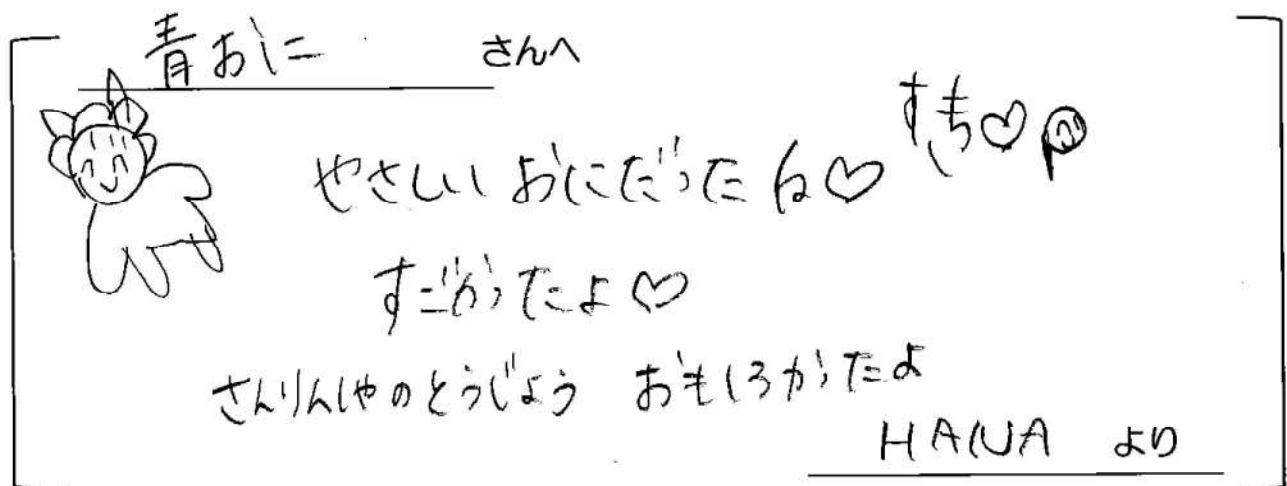 青おに さんへ
すき♡
やさしいおにだったね♡
すごかったよ♡
さんりんしゃのとうじょう おもしろかったよ
HANA より